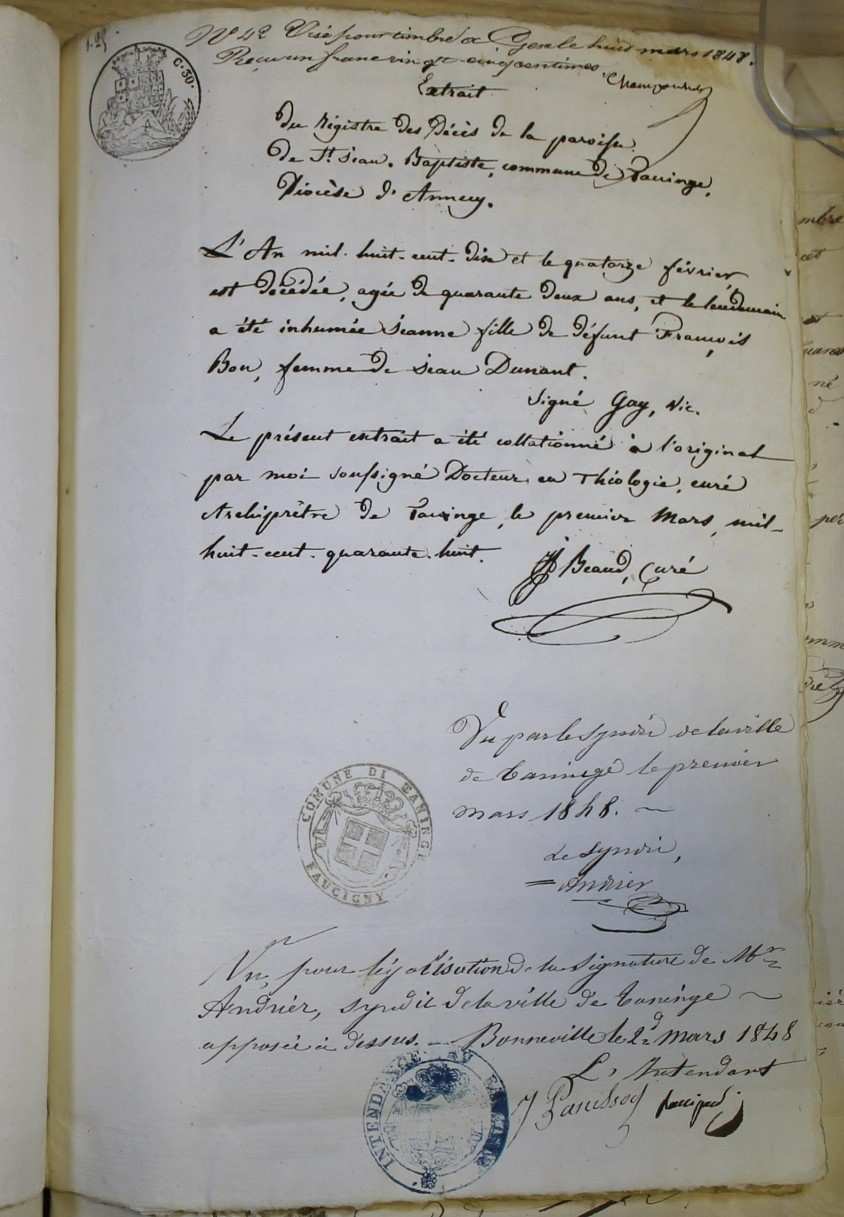 1.25
C. 30.
N° 42 Visé pour timbre à Gex le huit mars 1848.
Reçu un franc vingt cinq centimes.
Extrait
du Registre des Décès de la paroisse
de St Jean-Baptiste, commune de Taninge,
Diocèse d'Annecy.
L'An mil-huit-cent-dix et le quatorze février
est décédée, agée de quarante deux ans, et le lendemain
a été inhumée Jeanne fille de défunt François
Bon, femme de Jean Dunant.
Signé Gay, Vic.
Le présent extrait a été collationné à l'original
par moi soussigné Docteur en Théologie, curé
Archiprêtre de Taninge, le premier Mars, mil-
huit-cent-quarante-huit.
Beaud, Curé
Vu par le Syndic de la ville
de Taninge le premier
mars 1848.
Le Syndic,
Andrier
COMUNE DI TANINGE
FAUCIGNY
Vu, pour légalisation de la signature de Mr
Andrier, syndic de la ville de Taninge
apposée ci dessus. - Bonneville le 2d Mars 1848
L'Intendant
INTENDANCE DU FAUCIGNY